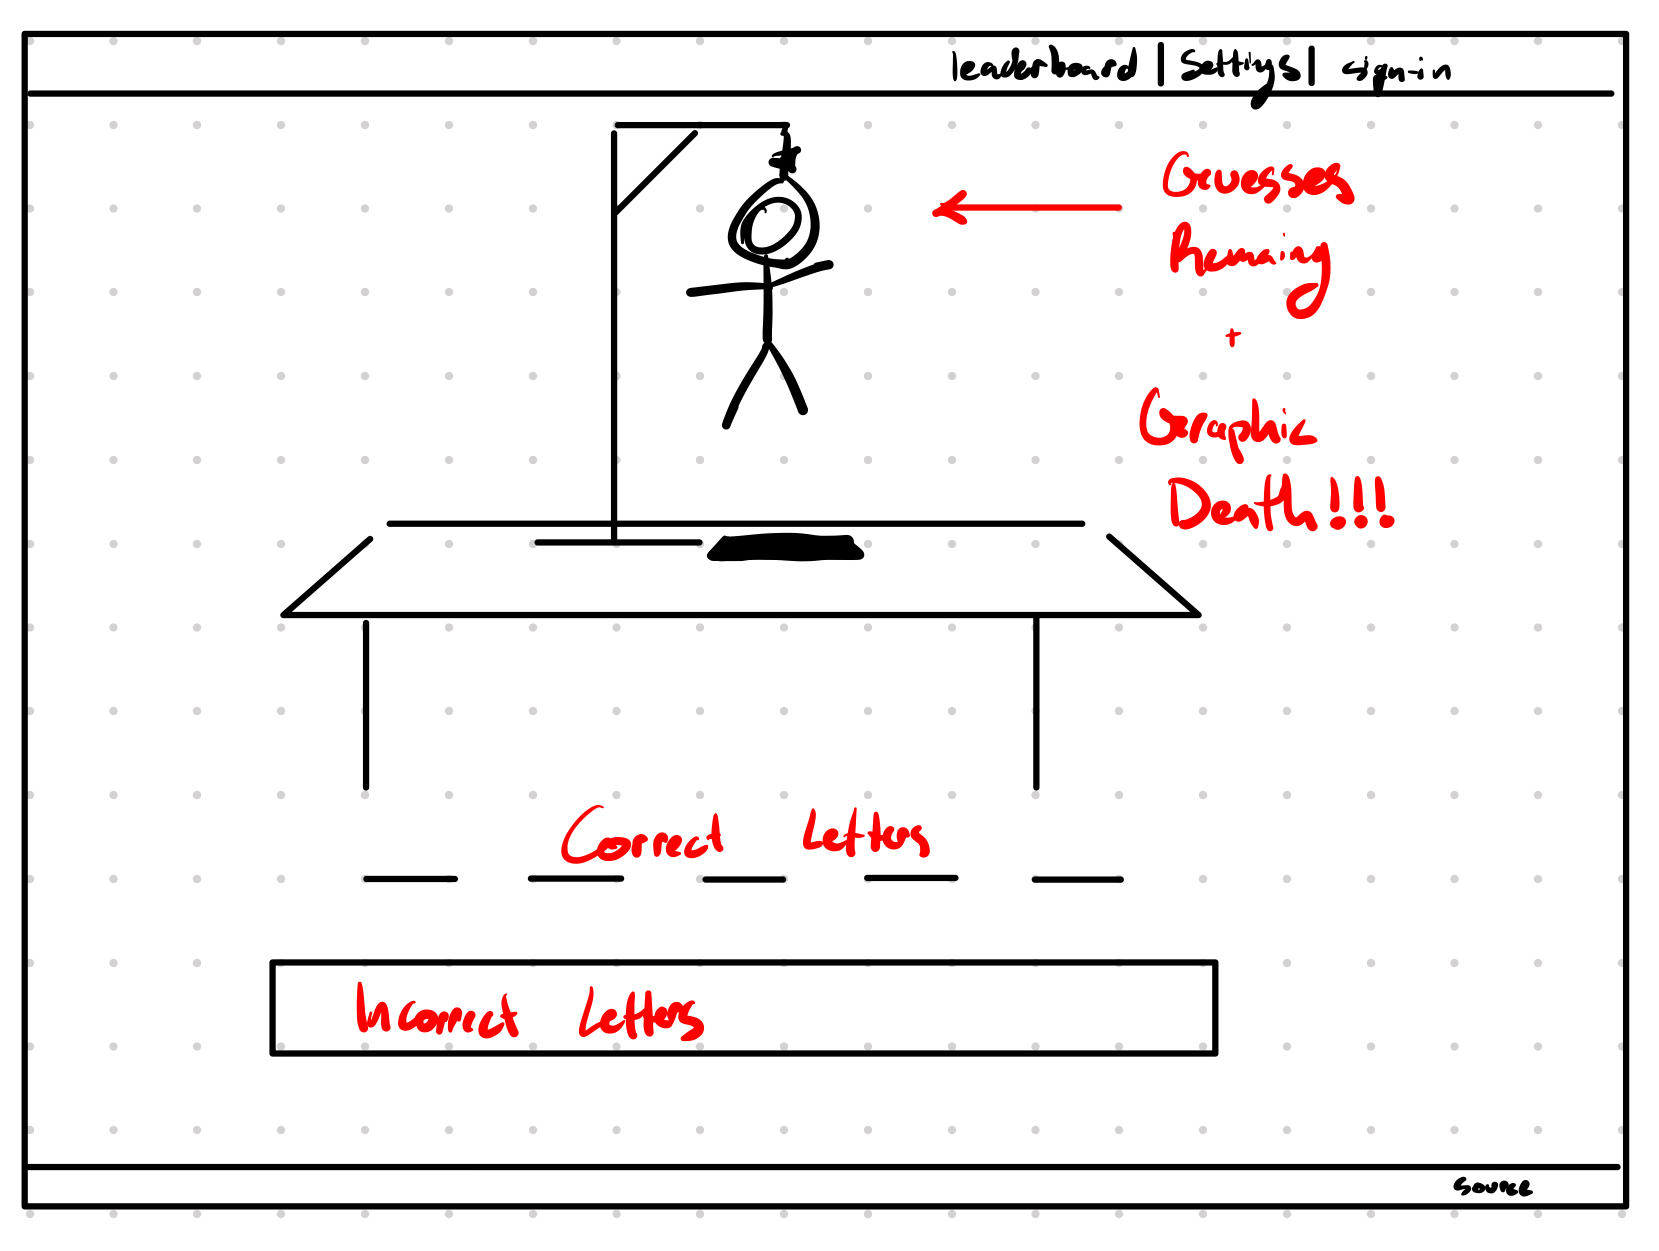 leaderboard | Settings | sign-in
Guesses
Remaing
+
Graphic
Death!!!
Correct Letters
Incorrect Letters
source